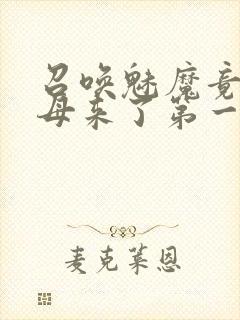 召唤魅魔竟
母来了第一
麦克莱恩